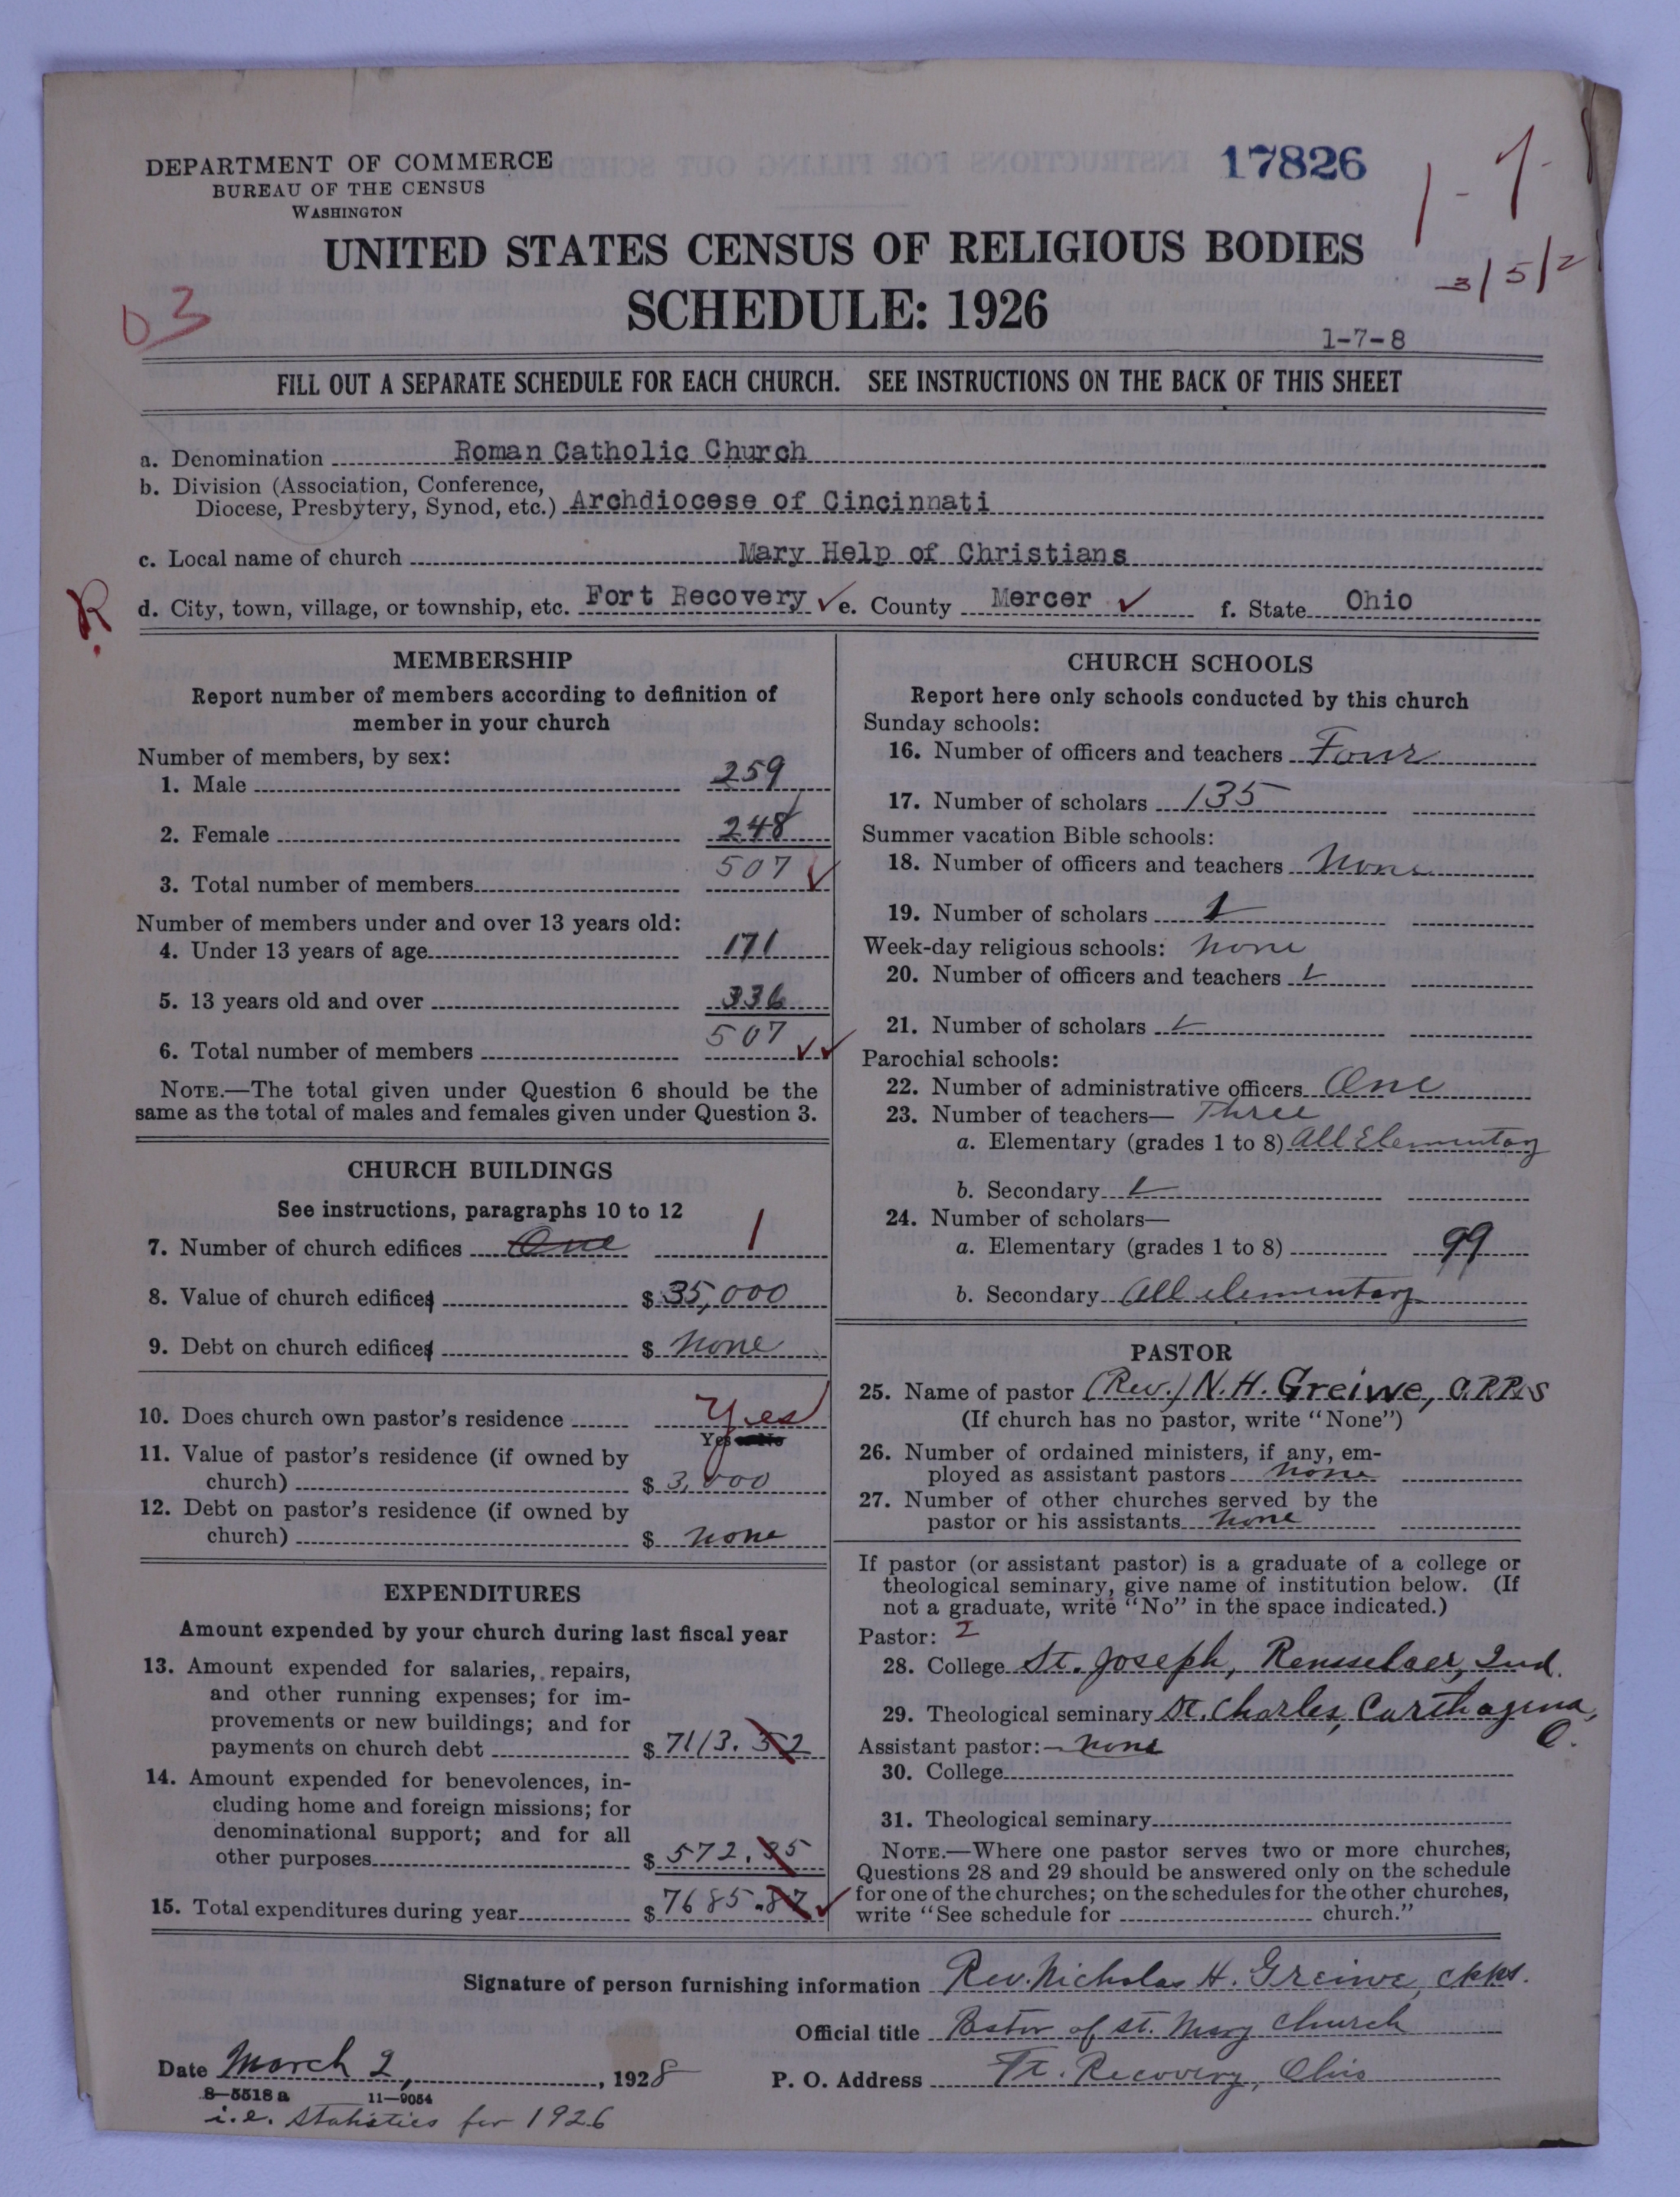 DEPARTMENT OF COMMERCE
BUREAU OF THE CENSUS
WASHINGTON
17826
1-7-
UNITED STATES CENSUS OF RELIGIOUS BODIES
3/5/2
SCHEDULE: 1926
03
1-7-8
FILL OUT A SEPARATE SCHEDULE FOR EACH CHURCH. SEE INSTRUCTIONS ON THE BACK OF THIS SHEET
a. Denomination Roman Catholic Church
b. Division (Association, Conference,
Diocese, Presbytery, Synod, etc.) Archdiocese of Cincinnati
c. Local name of church Mary Help of Christians
R.
d. City, town, village, or township, etc. Fort Recovery ✓ e. County Mercer ✓ f. State Ohio
MEMBERSHIP
Report number of members according to definition of
member in your church
Number of members, by sex:
1. Male 259
2. Female 248
3. Total number of members 507 ✓
Number of members under and over 13 years old:
4. Under 13 years of age 171
5. 13 years old and over 336
6. Total number of members 507 ✓✓
NOTE.—The total given under Question 6 should be the
same as the total of males and females given under Question 3.
CHURCH BUILDINGS
See instructions, paragraphs 10 to 12
7. Number of church edifices One 1
8. Value of church edifices $ 35,000
9. Debt on church edifices $ none
10. Does church own pastor's residence Yes
Yes or No
11. Value of pastor's residence (if owned by
church) $ 3,000
12. Debt on pastor's residence (if owned by
church) $ none
EXPENDITURES
Amount expended by your church during last fiscal year
13. Amount expended for salaries, repairs,
and other running expenses; for im-
provements or new buildings; and for
payments on church debt $ 7113.52
14. Amount expended for benevolences, in-
cluding home and foreign missions; for
denominational support; and for all
other purposes $ 572.35
15. Total expenditures during year $ 7685.87 ✓
CHURCH SCHOOLS
Report here only schools conducted by this church
Sunday schools:
16. Number of officers and teachers Four
17. Number of scholars 135
Summer vacation Bible schools:
18. Number of officers and teachers None
19. Number of scholars
Week-day religious schools: none
20. Number of officers and teachers
21. Number of scholars
Parochial schools:
22. Number of administrative officers One
23. Number of teachers— Three
a. Elementary (grades 1 to 8) All Elementary
b. Secondary
24. Number of scholars—
a. Elementary (grades 1 to 8) 99
b. Secondary All elementary
PASTOR
25. Name of pastor (Rev.) N. H. Greiwe, C.PP.S
(If church has no pastor, write "None")
26. Number of ordained ministers, if any, em-
ployed as assistant pastors none
27. Number of other churches served by the
pastor or his assistants none
If pastor (or assistant pastor) is a graduate of a college or
theological seminary, give name of institution below. (If
not a graduate, write "No" in the space indicated.)
Pastor: 2
28. College St. Joseph, Rensselaer, Ind.
29. Theological seminary St. Charles, Carthagena,
O.
Assistant pastor:— none
30. College
31. Theological seminary
NOTE.—Where one pastor serves two or more churches,
Questions 28 and 29 should be answered only on the schedule
for one of the churches; on the schedules for the other churches,
write "See schedule for church."
Signature of person furnishing information Rev. Nicholas H. Greiwe, cpps.
Official title Pastor of St. Mary Church
Date March 2, 1928 P. O. Address Ft. Recovery, Ohio
8—5518 a 11—9054
i.e. statistics for 1926